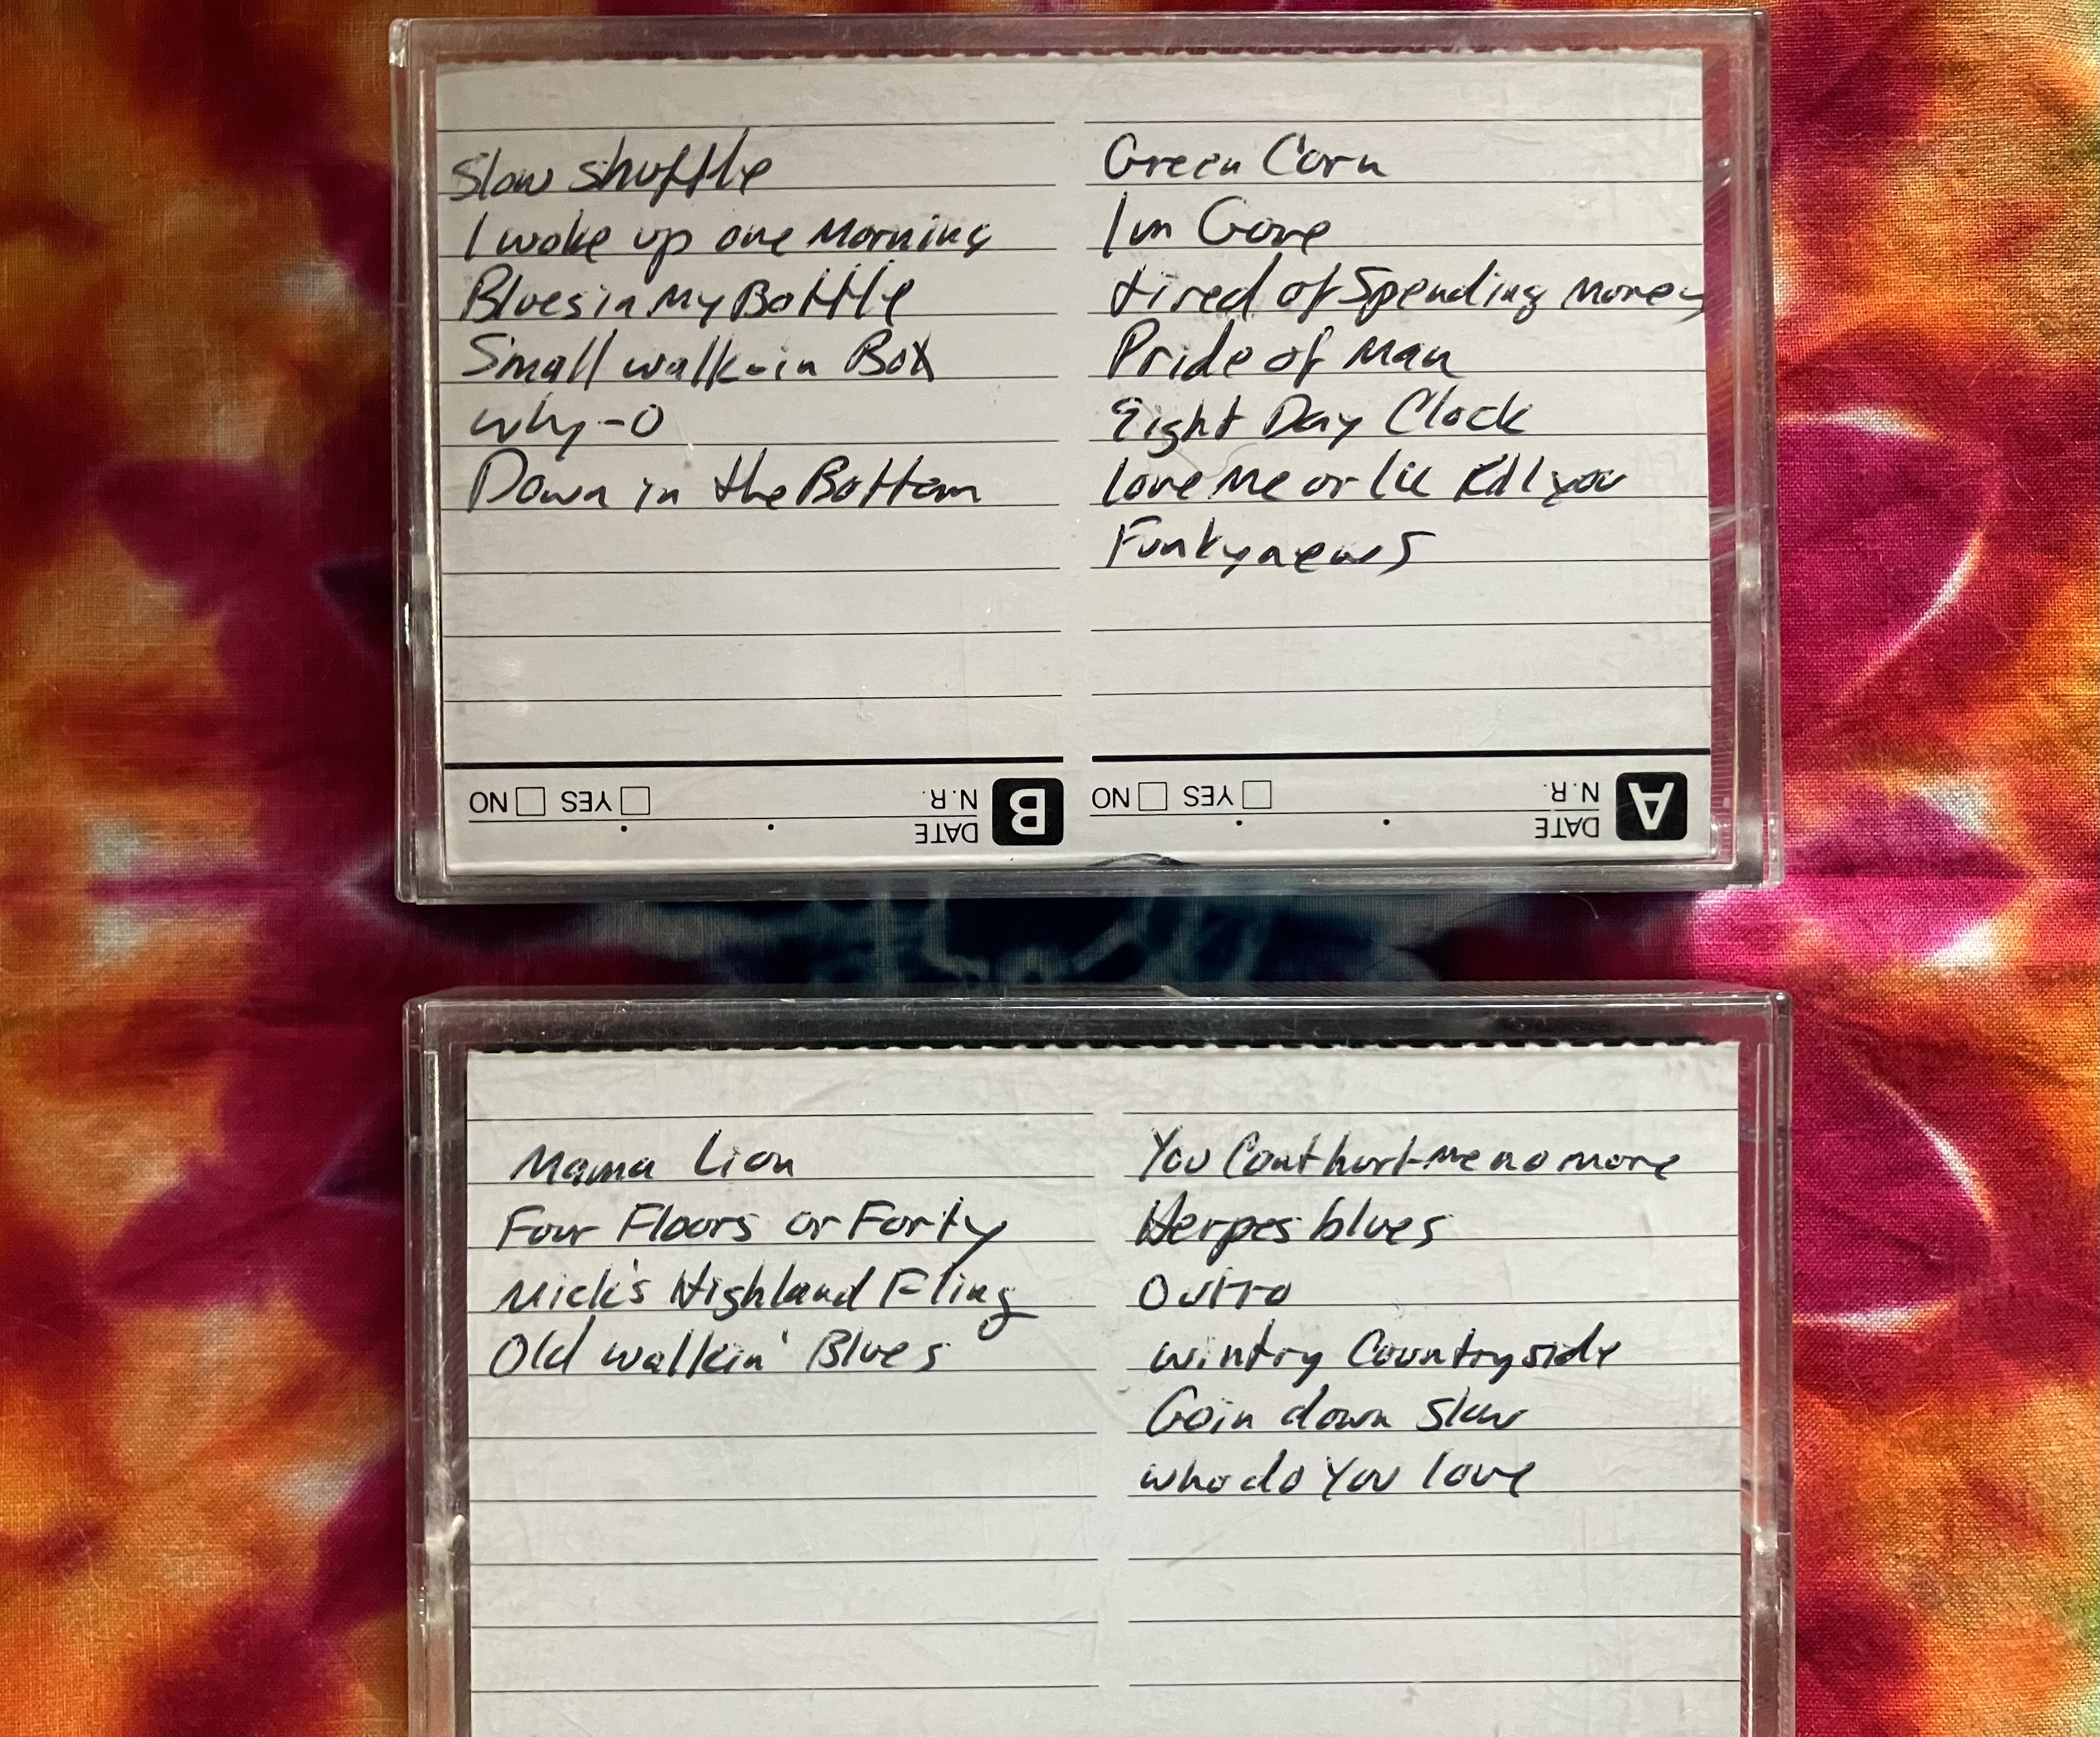 Slow shuffle
I woke up one Morning
Blues in My Bottle
Small walk-in Box
why-O
Down in the Bottom
Green Corn
Im Gone
tired of Spending Money
Pride of Man
Eight Day Clock
love Me or Ile Kill you
Funky news
NO YES N.R. B
DATE
NO YES N.R. A
DATE
Mama Lion
Four Floors or Forty
Mick's Highland Fling
Old walkin' Blues
You Cant hurt me no more
Herpes blues
Outro
wintry Countryside
Goin down slow
who do You love